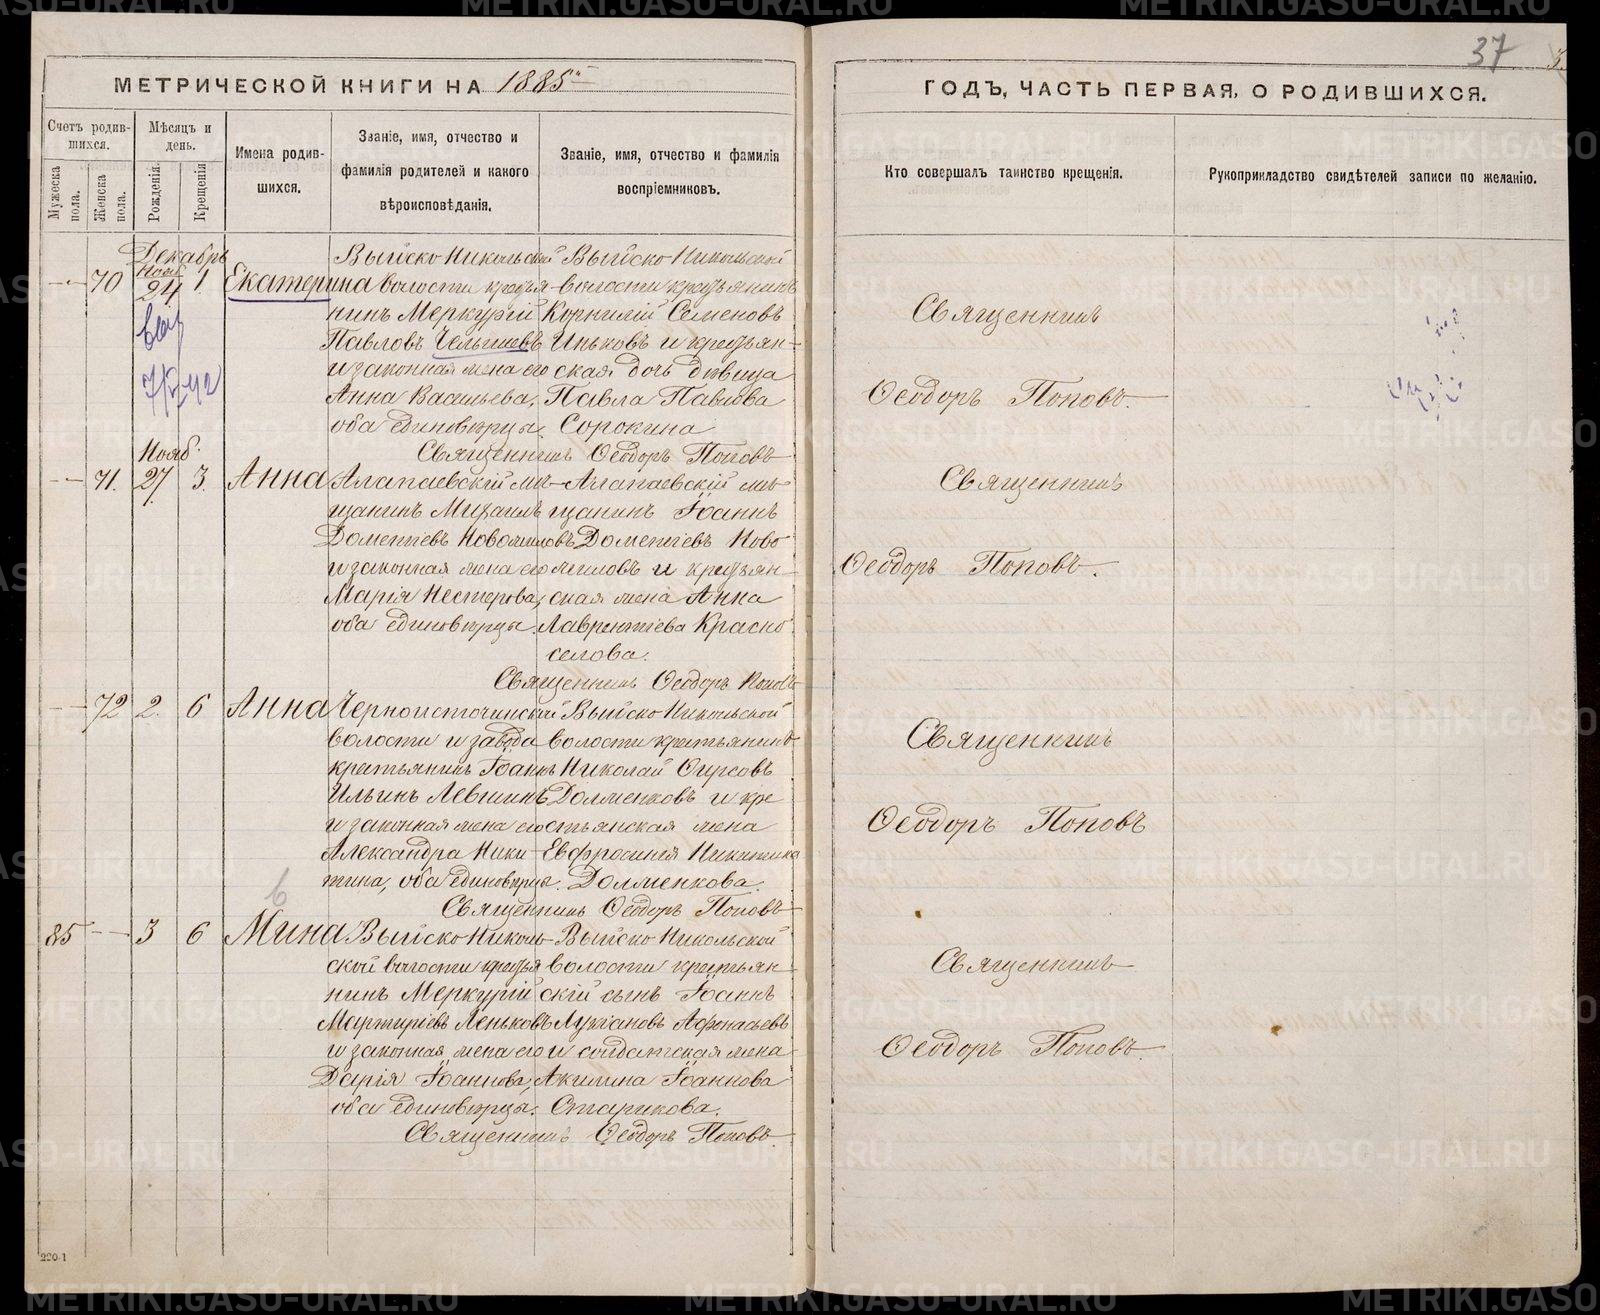 37
МЕТРИЧЕСКОЙ КНИГИ НА 1885й
ГОДЪ, ЧАСТЬ ПЕРВАЯ, О РОДИВШИХСЯ.
Счетъ родив-
шихся.
Мужеска пола.
Женска пола.
Мѣсяцъ и
день.
Рожденія.
Крещенія
Имена родив-
шихся.
Званіе, имя, отчество и
фамилія родителей и какого
вѣроисповѣданія.
Званіе, имя, отчество и фамилія
воспріемниковъ.
Кто совершалъ таинство крещенія.
Рукоприкладство свидѣтелей записи по желанію.
Декабрь
70 Нояб. 24 1. Екатерина
Выйско Никольской
волости кресть-
нинъ Меркурій
Павловъ Челышевъ
и законная жена его
Анна Васильева,
оба единовѣрцы.
Выйско Никольской
волости крестьянинъ
Корнилій Семеновъ
Иньковъ и крестьян-
ская дочь дѣвица
Павла Павлова
Сорокина
Священникъ Ѳеодоръ Поповъ
Священникъ
Ѳеодоръ Поповъ.
71. Нояб. 27. 3. Анна
Алапаевскій мѣ-
щанинъ Михаилъ
Дометіевъ Новожиловъ
и законная жена его
Марія Нестерова,
оба единовѣрцы.
Алапаевскій мѣ-
щанинъ Іоаннъ
Дометіевъ Ново-
жиловъ и крестьян-
ская жена Анна
Лаврентіева Красно-
селова.
Священникъ Ѳеодоръ Поповъ
Священникъ
Ѳеодоръ Поповъ.
72 2. 6 Анна
Черноисточинской
волости и завода
крестьянинъ Іоаннъ
Ильинъ Левшинъ
и законная жена его
Александра Ники-
тина, оба единовѣрцы.
Выйско Никольской
волости крестьянинъ
Николай Ѳирсовъ
Долженковъ и кре
стьянская жена
Евфросинія Никитина
Долженкова.
Священникъ Ѳеодоръ Поповъ
Священникъ
Ѳеодоръ Поповъ
85 3 6 Мина
Выйско Николь-
ской волости кресть
нинъ Меркурій
Мартиріевъ Леньковъ
и законная жена его
Дарія Іоаннова,
оба единовѣрцы.
Выйско Никольской
волости крестьян-
скій сынъ Іоаннъ
Лукіановъ Аѳонасьевъ
и солдатская жена
Акилина Іоаннова
Старикова.
Священникъ Ѳеодоръ Поповъ.
Священникъ
Ѳеодоръ Поповъ.
220-1
METRIKI.GASO-URAL.RU